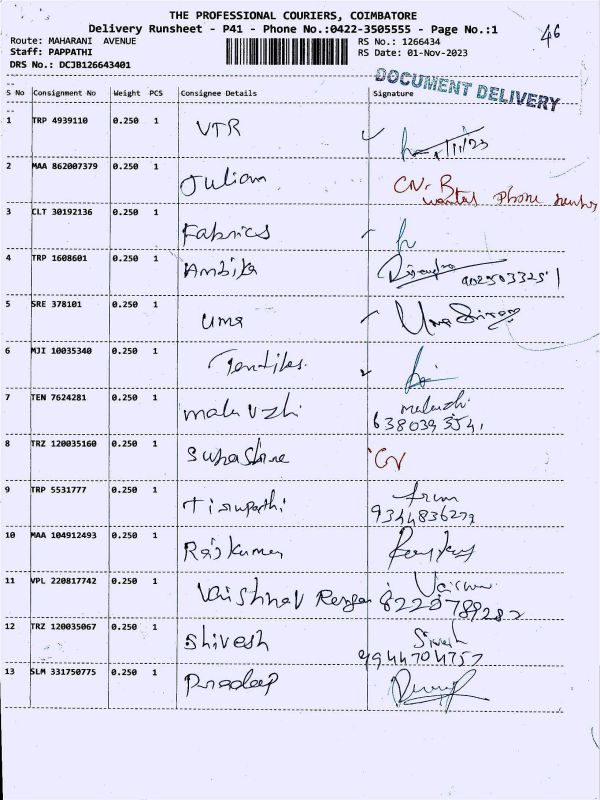 THE PROFESSIONAL COURIERS, COIMBATORE
Delivery Runsheet - P41 - Phone No.:0422-3505555 - Page No.:1
46
Route: MAHARANI AVENUE
RS No.: 1266434
Staff: PAPPATHI
RS Date: 01-Nov-2023
DRS No.: DCJB126643401
DOCUMENT DELIVERY
S No Consignment No Weight PCS Consignee Details Signature
1 TRP 4939110 0.250 1 VTR
1/11/23
2 MAA 862007379 0.250 1 Julian CN. B
phone number
3 CLT 30192136 0.250 1 Fabrics
4 TRP 1608601 0.250 1 Ambika
5 SRE 378101 0.250 1 uma
6 MJI 10035340 0.250 1 Textiles
7 TEN 7624281 0.250 1 malarvzhi
8 TRZ 120035160 0.250 1 CN
9 TRP 5531777 0.250 1 Tirupathi
10 MAA 104912493 0.250 1 Rajkumar
11 VPL 220817742 0.250 1 Vaishnav
12 TRZ 120035067 0.250 1 Shivesh
9944704757
13 SLM 331750775 0.250 1 Pradeep